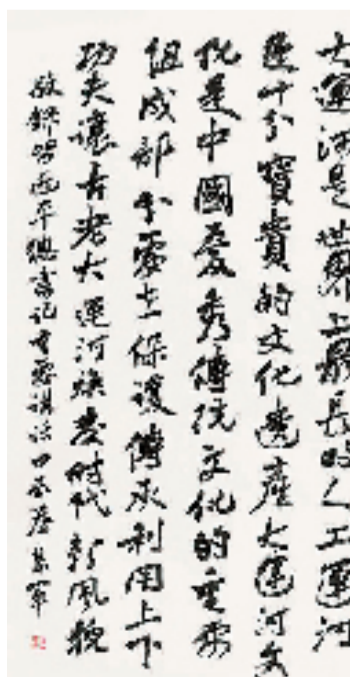 大運河是世界上最長的人工運河
是十分寶貴的文化遺產大運河文
化是中國優秀傳統文化的重要
組成部分要在保護傳承利用上下
功夫讓古老大運河煥發時代新風貌
敬錄習近平總書記重要講話